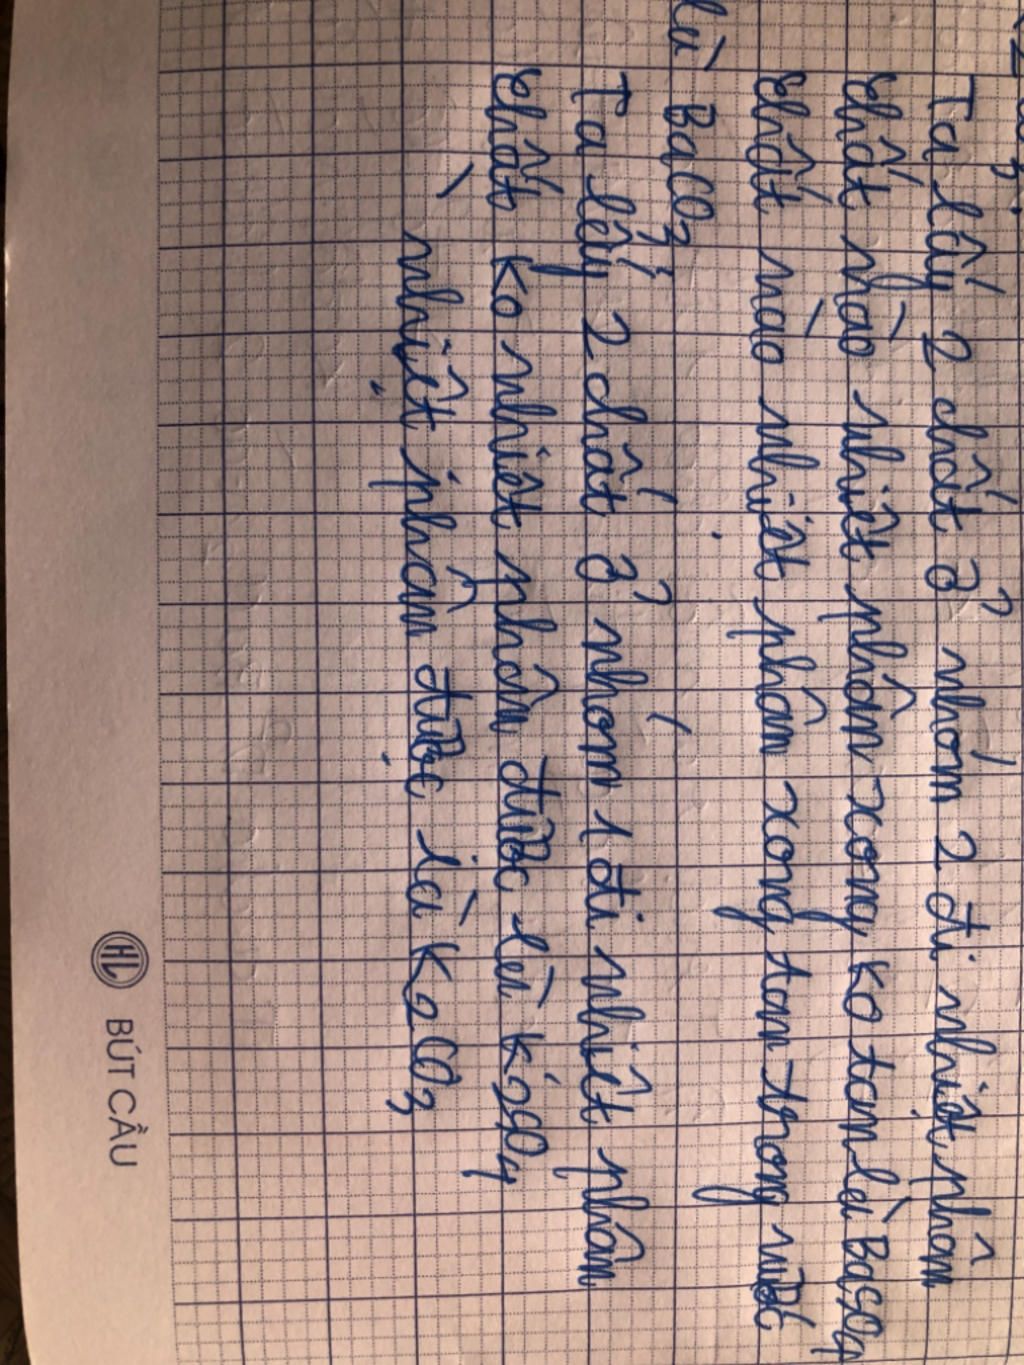 Ta lấy 2 chất ở nhóm 2 đi nhiệt phân
chất nào nhiệt phân xong ko tan là BaSO4
chất nào nhiệt phân xong tan trong nước
là BaCO3
Ta lấy 2 chất ở nhóm 1 đi nhiệt phân
chất ko nhiệt phân được là K2SO4
nhiệt phân được là K2CO3
HL BÚT CẦU